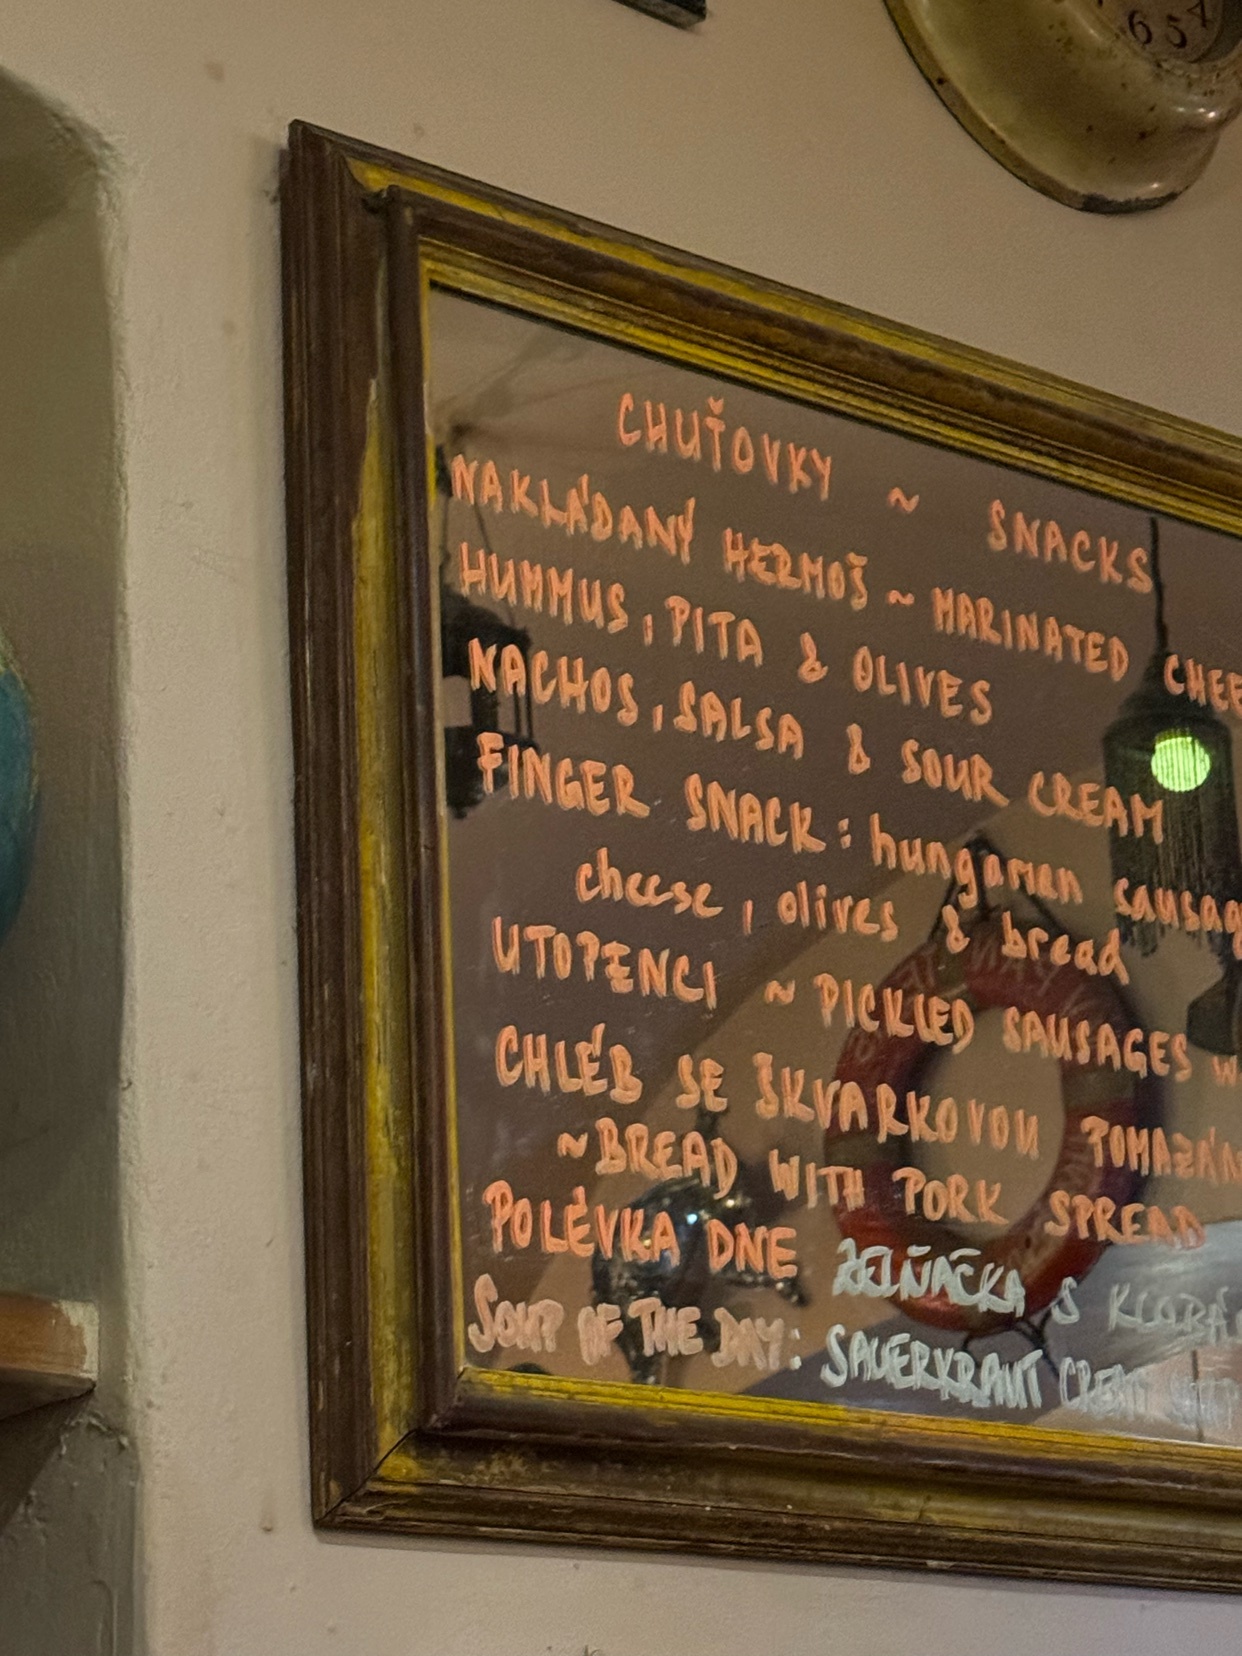 6 5 4
CHUŤOVKY ~ SNACKS
NAKLÁDANÝ HERMOŠ ~ MARINATED CHEE
HUMMUS, PITA & OLIVES
NACHOS, SALSA & SOUR CREAM
FINGER SNACK: hungarien sausag
cheese, olives & bread
UTOPENCI ~ PICKLED SAUSAGES W
CHLÉB SE ŠKVARKOVOU POMAZÁN
~ BREAD WITH PORK SPREAD
POLÉVKA DNE ZELŇAČKA S KLOBÁS
SOUP OF THE DAY: SAUERKRAUT CREAM WITH